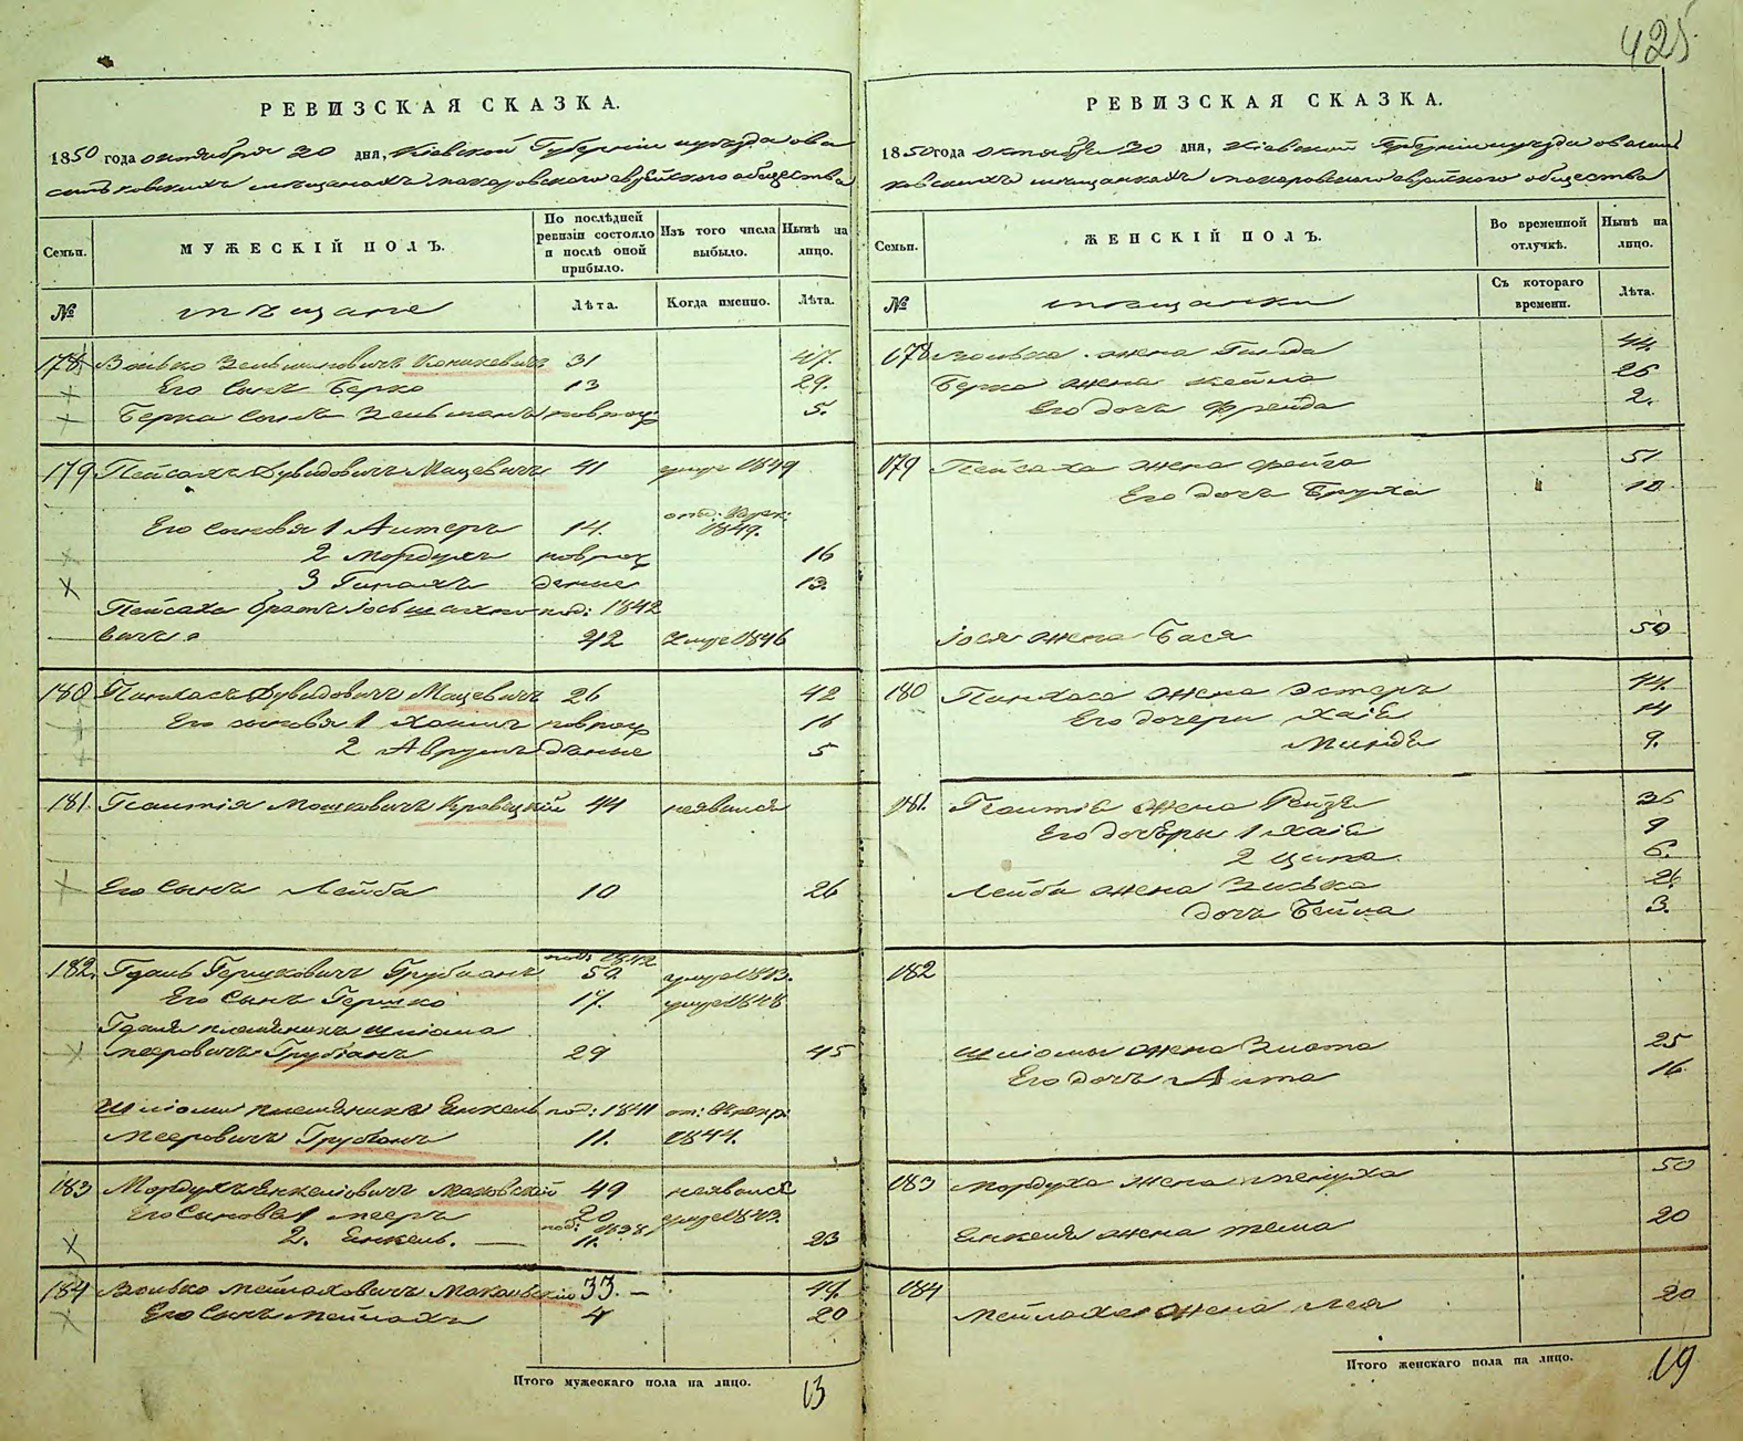 425
РЕВИЗСКАЯ СКАЗКА.
1850 года октября 20 дня, Кіевской Губерніи уезда
мещанахъ макаровского еврейского общества
Семьи.
МУЖЕСКІЙ ПОЛЪ.
По послѣдней ревизіи состояло и послѣ оной прибыло.
Изъ того числа выбыло.
Нынѣ на лицо.
№
мещане
Лѣта.
Когда именно.
Лѣта.
178 Волько Зельмановичъ 31 47.
Его Сынъ Берко 13 29.
Берка Сынъ Зельманъ новрож: 5.
179 Пейсахъ Дувидовичъ Мацевичъ 41 умре 1849
Его сыновья 1 Аитеръ 14. отд: Рекр: 1849.
2 Мордухъ новрож 16
3 Пинахъ денные 13.
Пейсаха братъ Іось под: 1842
вичъ 42 Умре 1846
180 Пинхасъ Дувидовичъ Мацевичъ 26 42
Его сыновья 1 Хаимъ новрож 16
2 Аврумъ данные 5
181. Мошковичъ Кравецкій 44 неявился
Его Сынъ Лейба 10 26
182. Гершковичъ Грубманъ под: 1842 50. умре 1843.
Его Сынъ Гершко 17. умре 1848
племянникъ Шліома
Мееровичъ Грубманъ 29 45
Шліомы племянникъ Енкель под: 1841 от: въ рекр:
Мееровичъ Грубманъ 11. 1844.
183 Мордухъ Енкеліовичъ Маковскій 49 неявился
Его Сыновья 1 Мееръ 20 умре 1843.
2. Енкель. под: 1838 11. 23
184 Волько Мейлаховичъ Маковскій 33. 49.
Его Сынъ Мейлахъ 4 20
Итого мужескаго пола на лицо. 13
РЕВИЗСКАЯ СКАЗКА.
1850 года октября 20 дня, Кіевской Губерніи уезда
мещанкахъ макаровского еврейского общества
Семьи.
ЖЕНСКІЙ ПОЛЪ.
Во временной отлучкѣ.
Нынѣ на лицо.
№
мещанки
Съ котораго времени.
Лѣта.
178 Волька жена Гинда 44.
Берка жена Кейла 25
Его дочь Фрейда 2.
179 Пейсаха жена Фейга 51
Его дочь Бруха 10
Іося жена Бася 50
180 Пинхаса жена Эстеръ 44.
Его дочери Хаія 14
Минде 9.
181. жена Рейзя 36
Его дочери 1 Хаія 9
2 Ципа 6.
Лейбы жена Зиська 26
дочь Бейла 3.
182
Шліомы жена Злота 25
Его дочь Аита 16
183 Мордуха жена Менуха 50
Енкеля жена Тема 20
184
Мейлаха жена Лея 20
Итого женскаго пола на лицо. 19